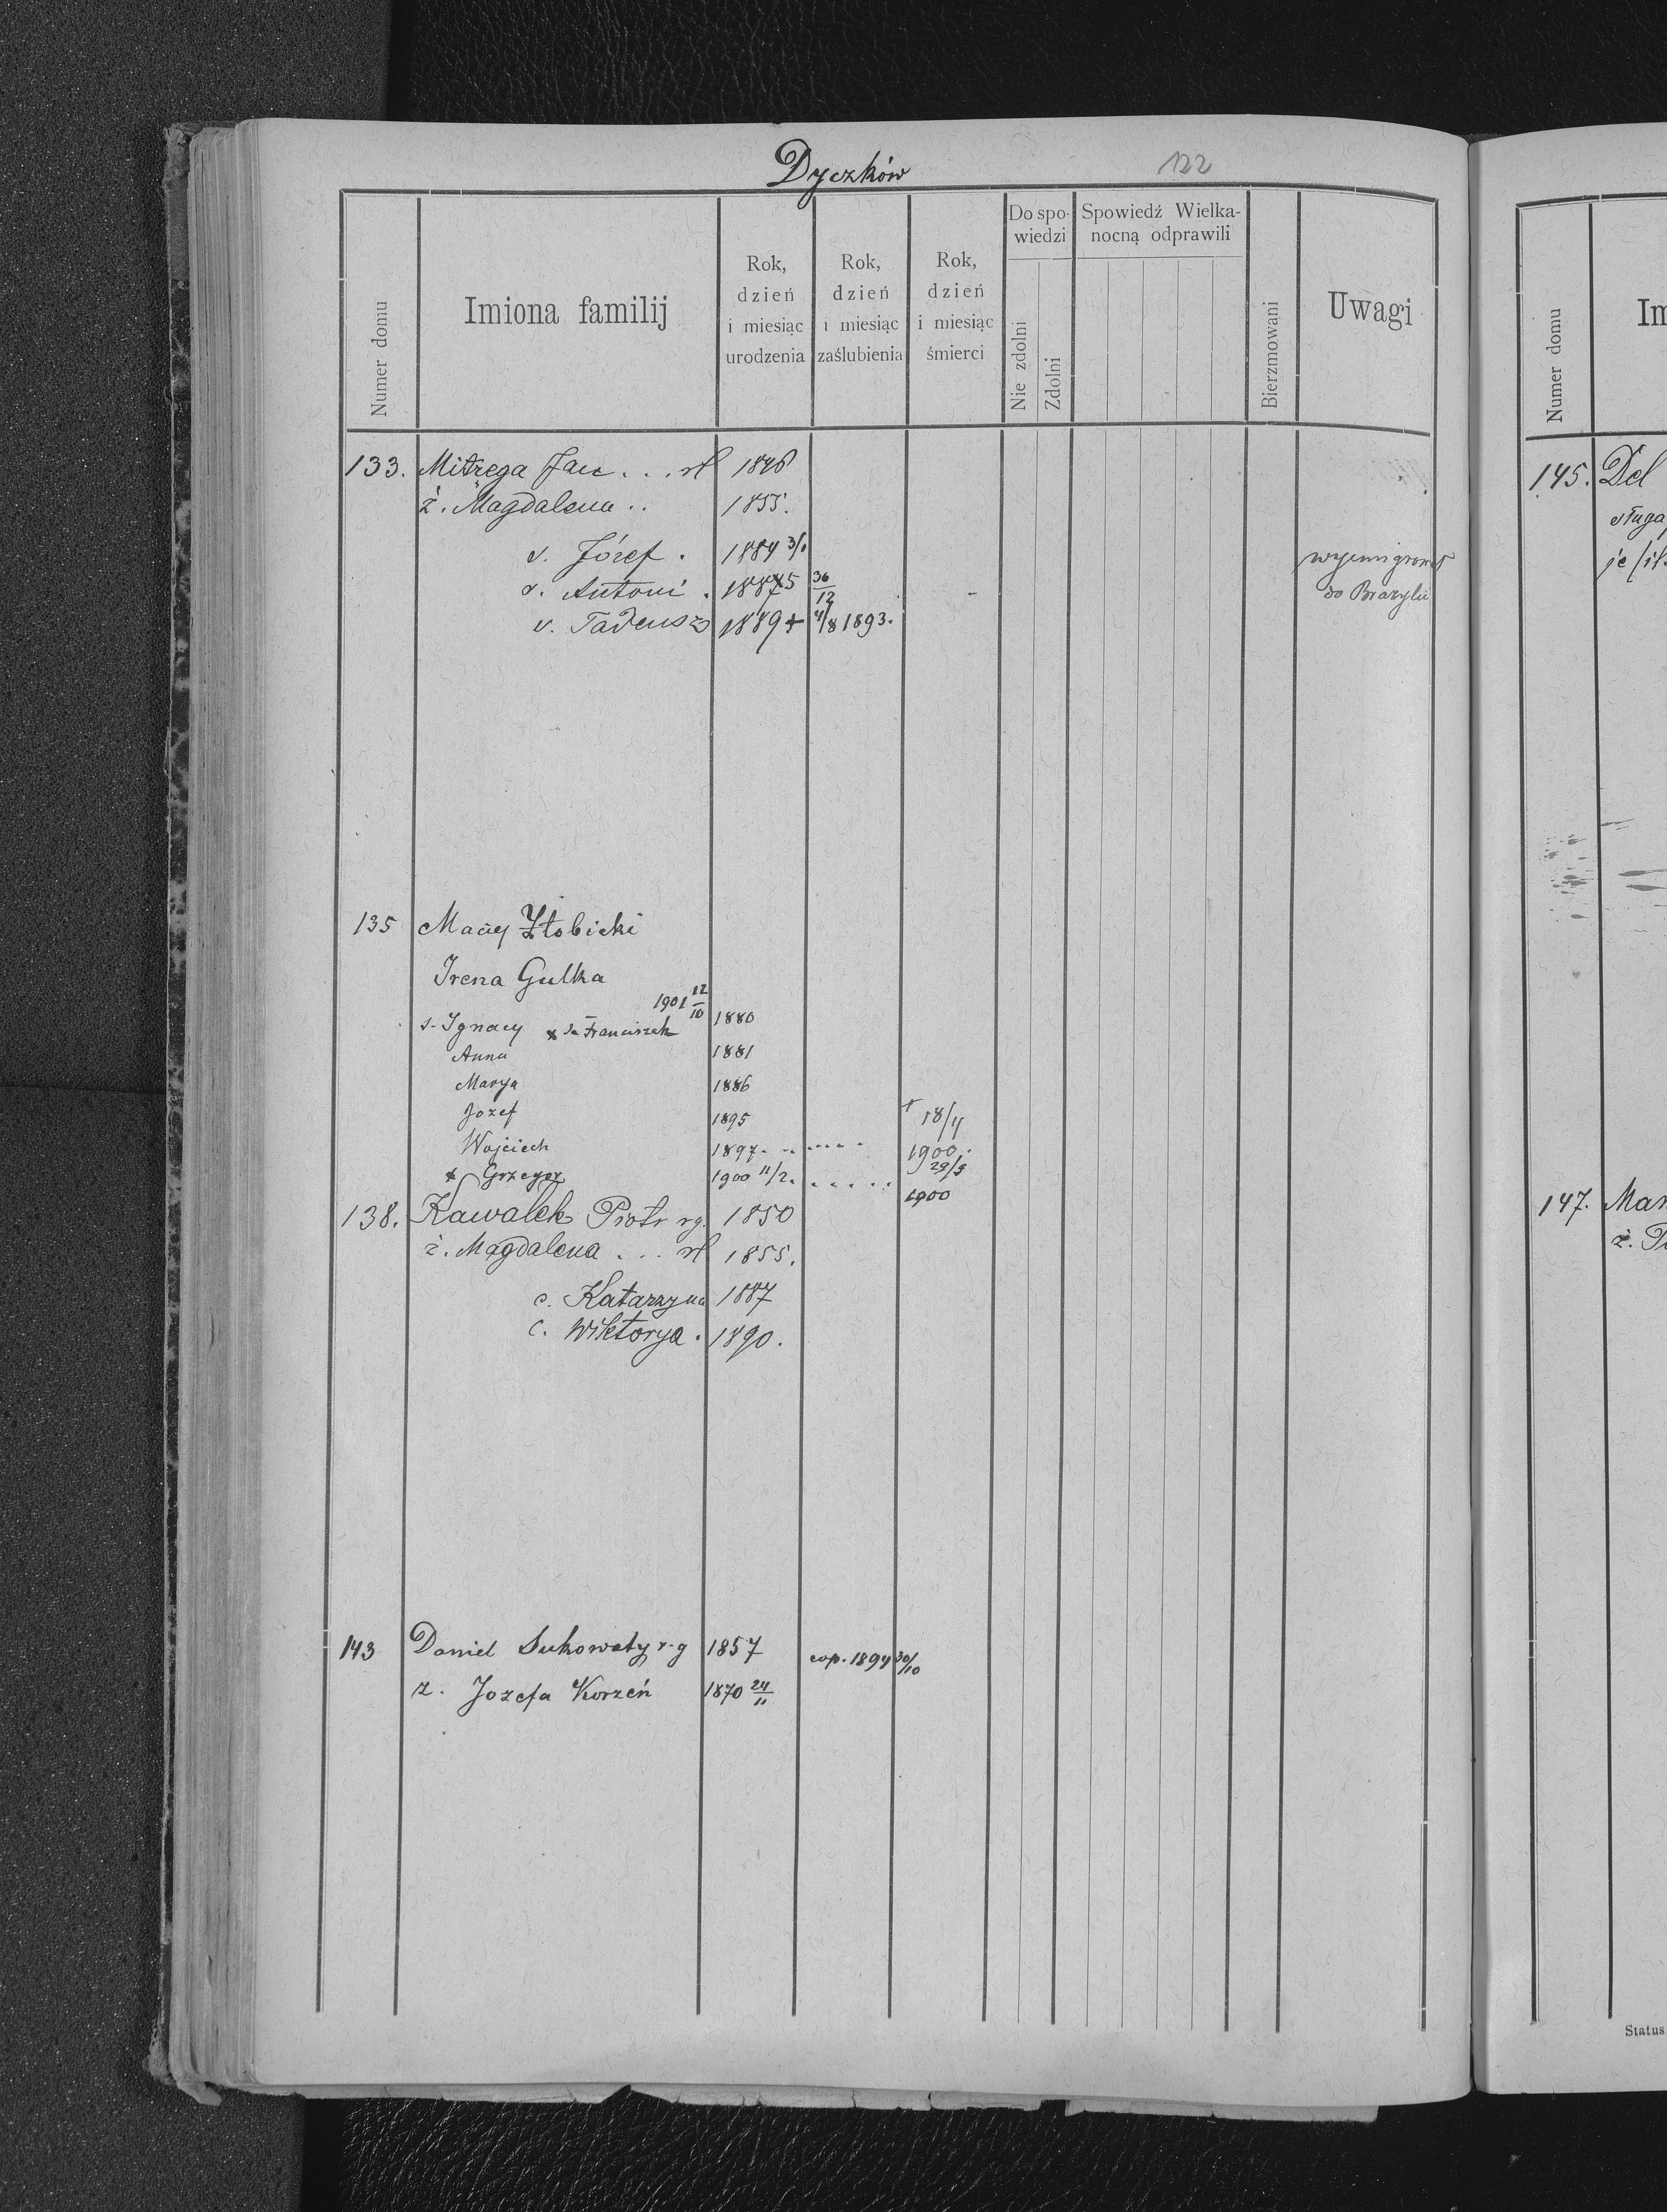 Dyczków 122
Numer domu
Imiona familij
Rok, dzień i miesiąc urodzenia
Rok, dzień i miesiąc zaślubienia
Rok, dzień i miesiąc śmierci
Do spowiedzi
Nie zdolni
Zdolni
Spowiedź Wielkanocną odprawili
Bierzmowani
Uwagi
133. Mitręga Jan . . . rł 1846
ż. Magdalena . . 1855.
s. Józef . 1884 3/1
s. Antoni . 1885 30/12 wyemigrował
s. Tadeusz 1889 + 4/8 1893. do Brazylii
135 Maciej Żłobicki
Irena Gulka
1901 12/10
s. Ignacy * Franciszek 1880
Anna 1881
Marya 1886
Jozef 1895
Wojciech 1897 . . . . . . † 18/4 1900.
* Grzegorz 1900 11/2 . . . . . 29/5 1900
138. Kawałek Piotr rg. 1850
ż. Magdalena . . . rł 1855.
c. Katarzyna 1887
c. Wiktorya . 1890.
143 Daniel Sukowaty r-g 1857 cop. 1894 30/10
z. Jozefa Korzeń 1870 24/11
Numer domu
Im
145. Del
sługa
147. Mar
ż.
Status